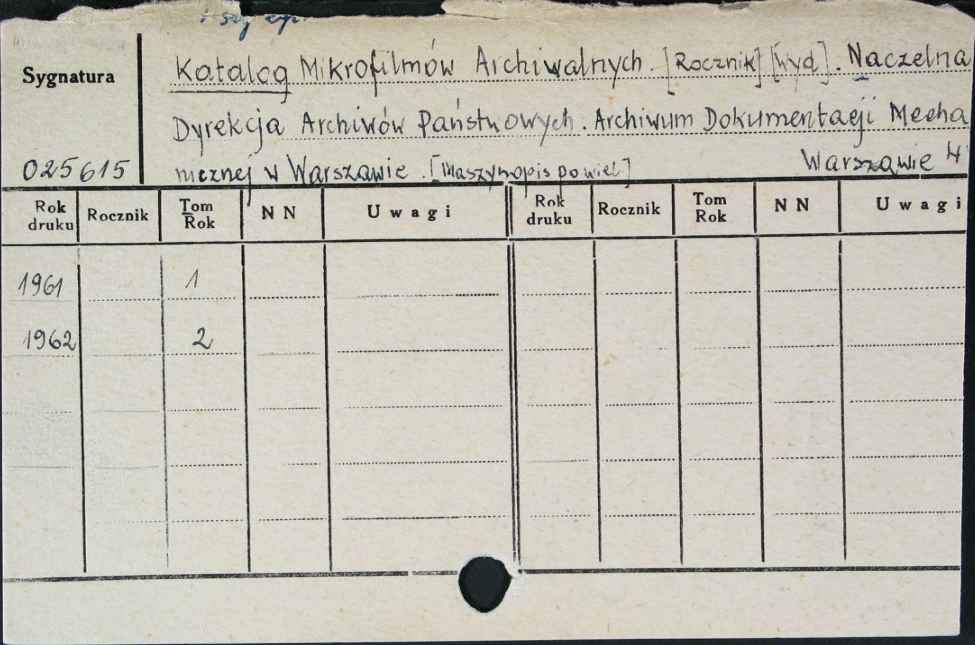 Sygnatura
Katalog Mikrofilmów Archiwalnych. [Rocznik] [Wyd]. Naczelna
Dyrekcja Archiwów Państwowych. Archiwum Dokumentacji Mecha
025615
nicznej w Warszawie. [Maszynopis powiel] Warszawie
Rok druku Rocznik Tom Rok NN Uwagi Rok druku Rocznik Tom Rok NN Uwagi
1961 1
1962 2